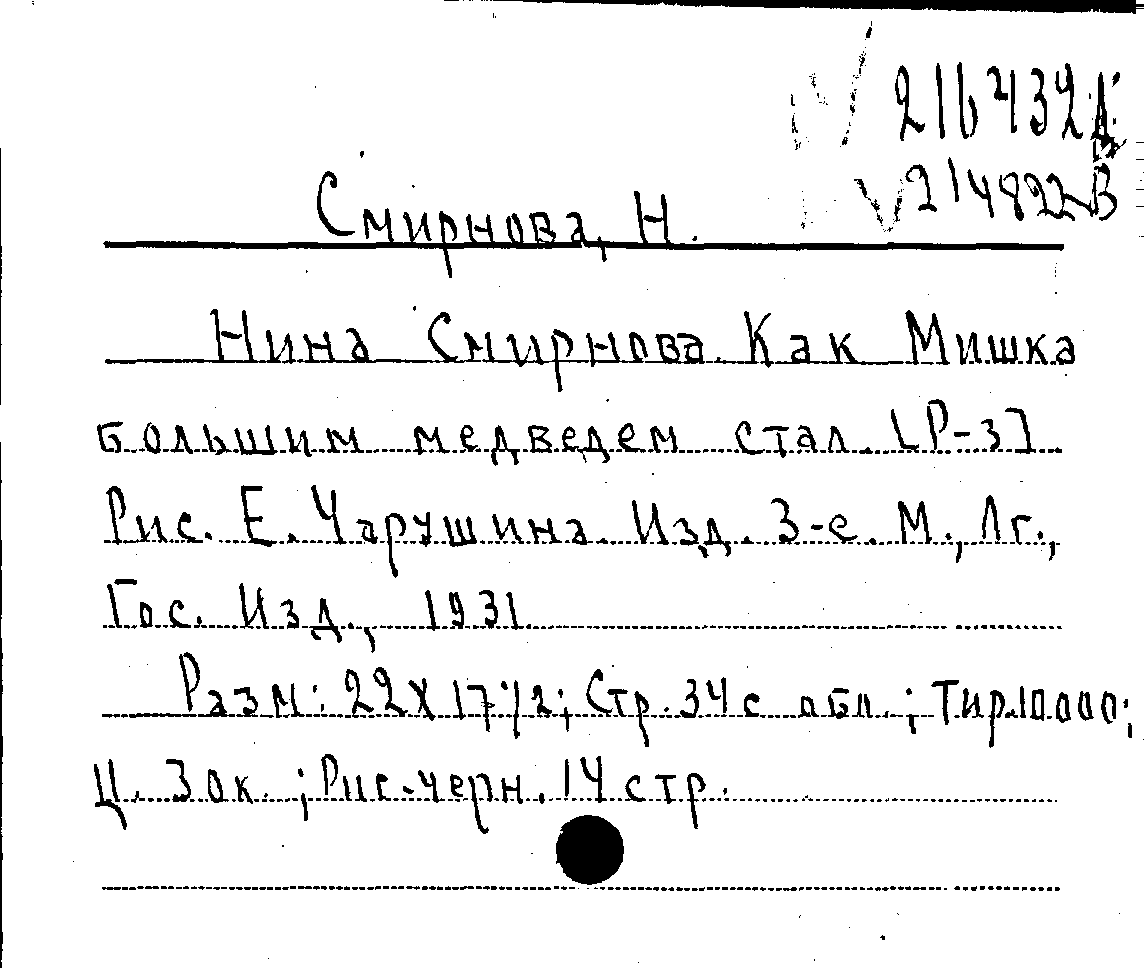 216432Д
214822В
Смирнова, Н.
Нина Смирнова. Как Мишка
большим медведем стал. [Р-з]
Рис. Е. Чарушина. Изд. 3-е. М., Лг.,
Гос. Изд., 1931.
Разм: 22х17½; Стр. 34 с обл.; Тир.10.000;
Ц. 30к.; Рис.-черн. 14 стр.